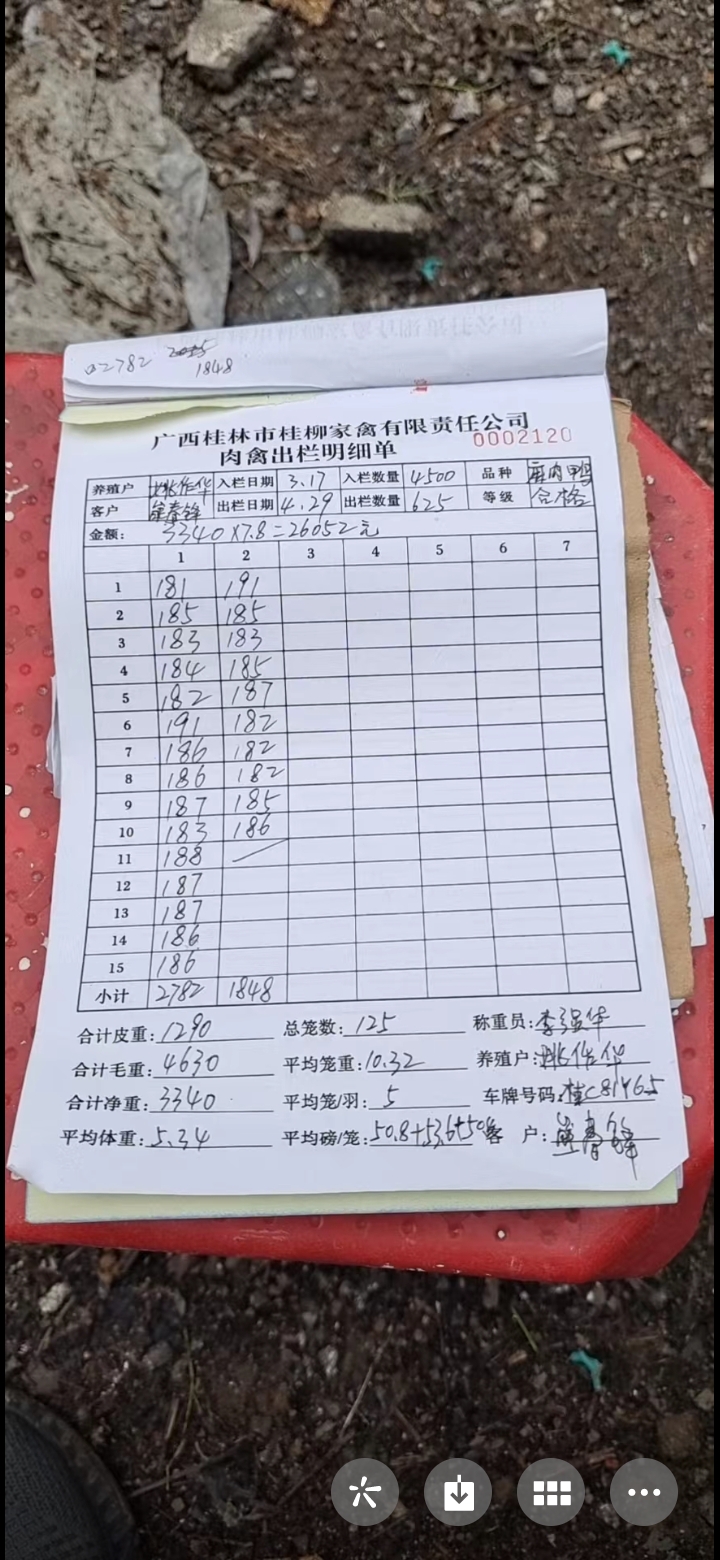 02782 2015
1848
广西桂林市桂柳家禽有限责任公司
肉禽出栏明细单 0002120
养殖户 姚作华 入栏日期 3.17 入栏数量 4500 品种 麻肉鸭
客户 春锋 出栏日期 4.29 出栏数量 625 等级 合格
金额: 3340×7.8=26052元
1 2 3 4 5 6 7
1 181 191
2 185 185
3 183 183
4 184 185
5 182 187
6 191 182
7 186 182
8 186 182
9 187 185
10 183 186
11 188
12 187
13 187
14 186
15 186
小计 2782 1848
合计皮重: 1290 总笼数: 125 称重员: 李强华
合计毛重: 4630 平均笼重: 10.32 养殖户: 姚作华
合计净重: 3340 平均笼/羽: 5 车牌号码: 桂C81Y65
平均体重: 5.34 平均磅/笼: 50.8+53.6+50 客 户: 春锋